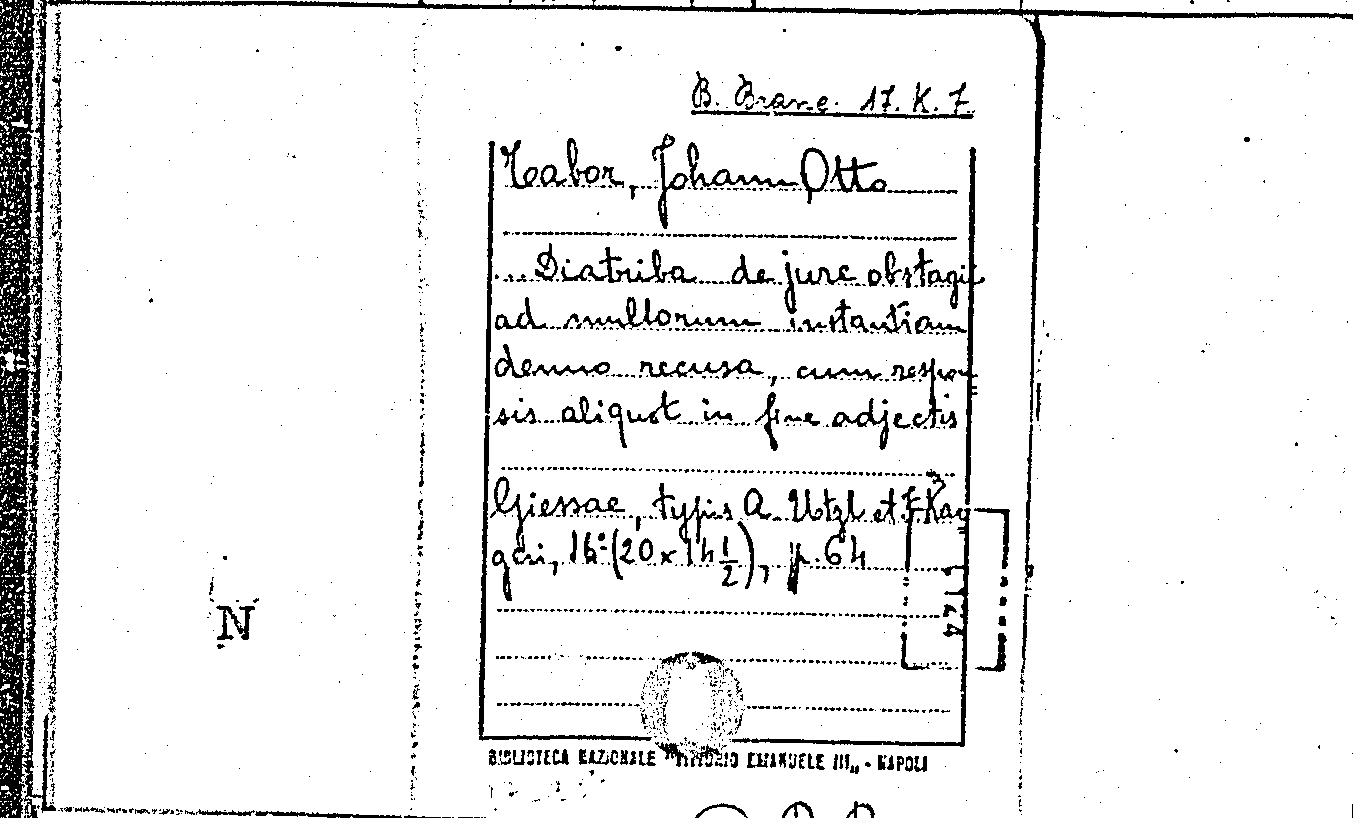 B. Branc. 17. K. 7
Tabor, Johann Otto
...Diatriba de jure obstagii
ad nullorum instantiam
denuo recusa, cum respon
sis aliquot in fine adjectis
Giessae, typis A. Utzl et
geri, 16º (20 x 14 1/2), p. 64
N
BIBLIOTECA NAZIONALE "VITTORIO EMANUELE III" - NAPOLI